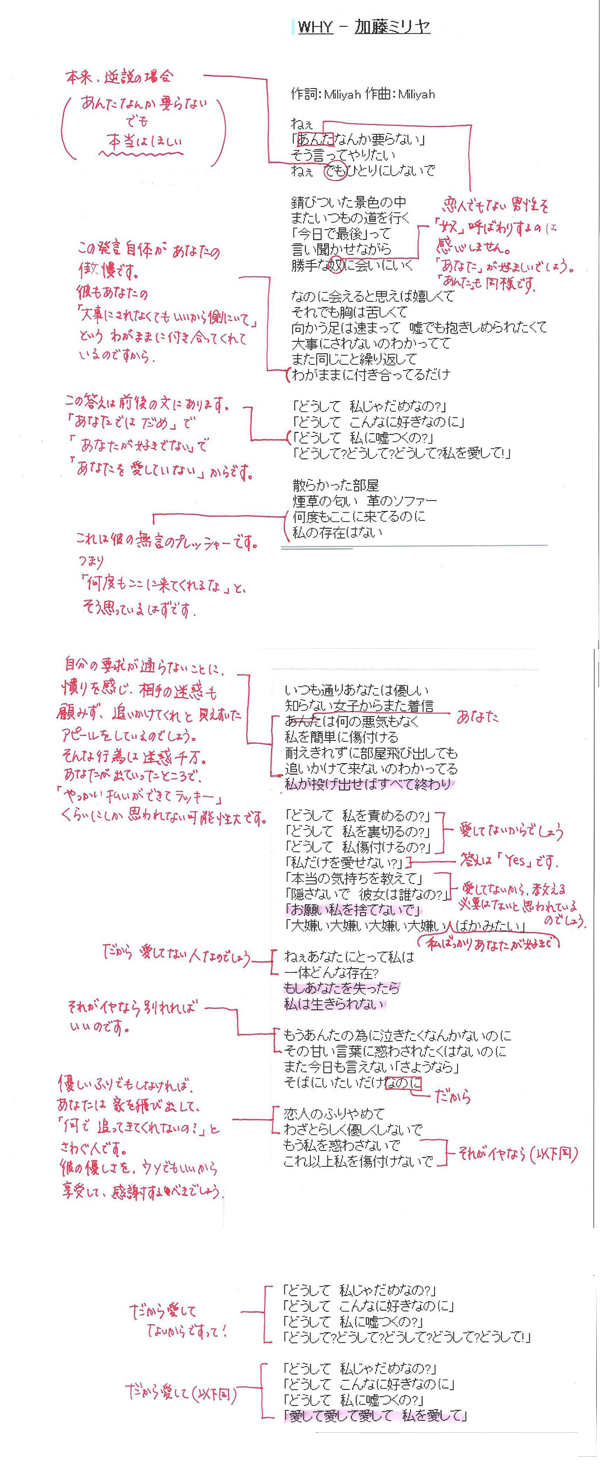 WHY － 加藤ミリヤ
作詞：Miliyah 作曲：Miliyah
本来、逆説の場合
あんたなんか要らない
でも
本当はほしい
ねぇ
「あんたなんか要らない」
そう言ってやりたい
ねぇ でもひとりにしないで
恋人でもない男性を
「奴」呼ばわりするのは
感心しません。
「あなた」が好ましいでしょう。
「あんた」も同様です。
錆びついた景色の中
またいつもの道を行く
「今日で最後」って
言い聞かせながら
勝手な奴に会いにいく
この発言自体があなたの
傲慢です。
彼もあなたの
「大事にされなくてもいいから側にいて」
という わがままに付き合ってくれて
いるのですから。
なのに会えると思えば嬉しくて
それでも胸は苦しくて
向かう足は速まって 嘘でも抱きしめられたくて
大事にされないのわかってて
また同じこと繰り返して
わがままに付き合ってるだけ
この答えは前後の文にあります。
「あなたではだめ」で
「あなたが好きでない」で
「あなたを愛していない」からです。
「どうして 私じゃだめなの？」
「どうして こんなに好きなのに」
「どうして 私に嘘つくの？」
「どうして？どうして？どうして？私を愛して！」
散らかった部屋
煙草の匂い 革のソファー
何度もここに来てるのに
私の存在はない
これは彼の無言のプレッシャーです。
つまり
「何度もここに来てくれるな」と、
そう思っているはずです.
自分の要求が通らないことに、
憤りを感じ、相手の迷惑も
顧みず、追いかけてくれと見えすいた
アピールをしているのでしょう。
そんな行為は迷惑千万。
あなたが出ていったところで、
「やっかい払いができてラッキー」
くらいにしか思われない可能性大です。
いつも通りあなたは優しい
知らない女子からまた着信
あんたは何の悪気もなく
あなた
私を簡単に傷付ける
耐えきれずに部屋飛び出しても
追いかけて来ないのわかってる
私が投げ出せばすべて終わり
「どうして 私を責めるの？」
「どうして 私を裏切るの？」
「どうして 私傷付けるの？」
愛してないからでしょう
「私だけを愛せない？」
答えは「Yes」です.
「本当の気持ちを教えて」
「隠さないで 彼女は誰なの？」
愛してないから、教える
必要はないと思われている
のでしょう。
「お願い私を捨てないで」
「大嫌い大嫌い大嫌い大嫌い ばかみたい」
私ばっかりあなたが好きで
だから 愛してない人なのでしょう
ねぇあなたにとって私は
一体どんな存在？
もしあなたを失ったら
私は生きられない
それがイヤなら別れれば
いいのです。
もうあんたの為に泣きたくなんかないのに
その甘い言葉に惑わされたくはないのに
また今日も言えない「さようなら」
そばにいたいだけなのに
だから
優しいふりでもしなければ、
あなたは家を飛び出して、
「何で追ってきてくれないの？」と
さわぐ人です。
彼の優しさを、ウソでもいいから
享受して、感謝するべきでしょう.
恋人のふりやめて
わざとらしく優しくしないで
もう私を惑わさないで
これ以上私を傷付けないで
それがイヤなら（以下同）
だから愛して
ないからですって！
「どうして 私じゃだめなの？」
「どうして こんなに好きなのに」
「どうして 私に嘘つくの？」
「どうして？どうして？どうして？どうして？どうして！」
だから愛して（以下同）
「どうして 私じゃだめなの？」
「どうして こんなに好きなのに」
「どうして 私に嘘つくの？」
「愛して愛して愛して 私を愛して」